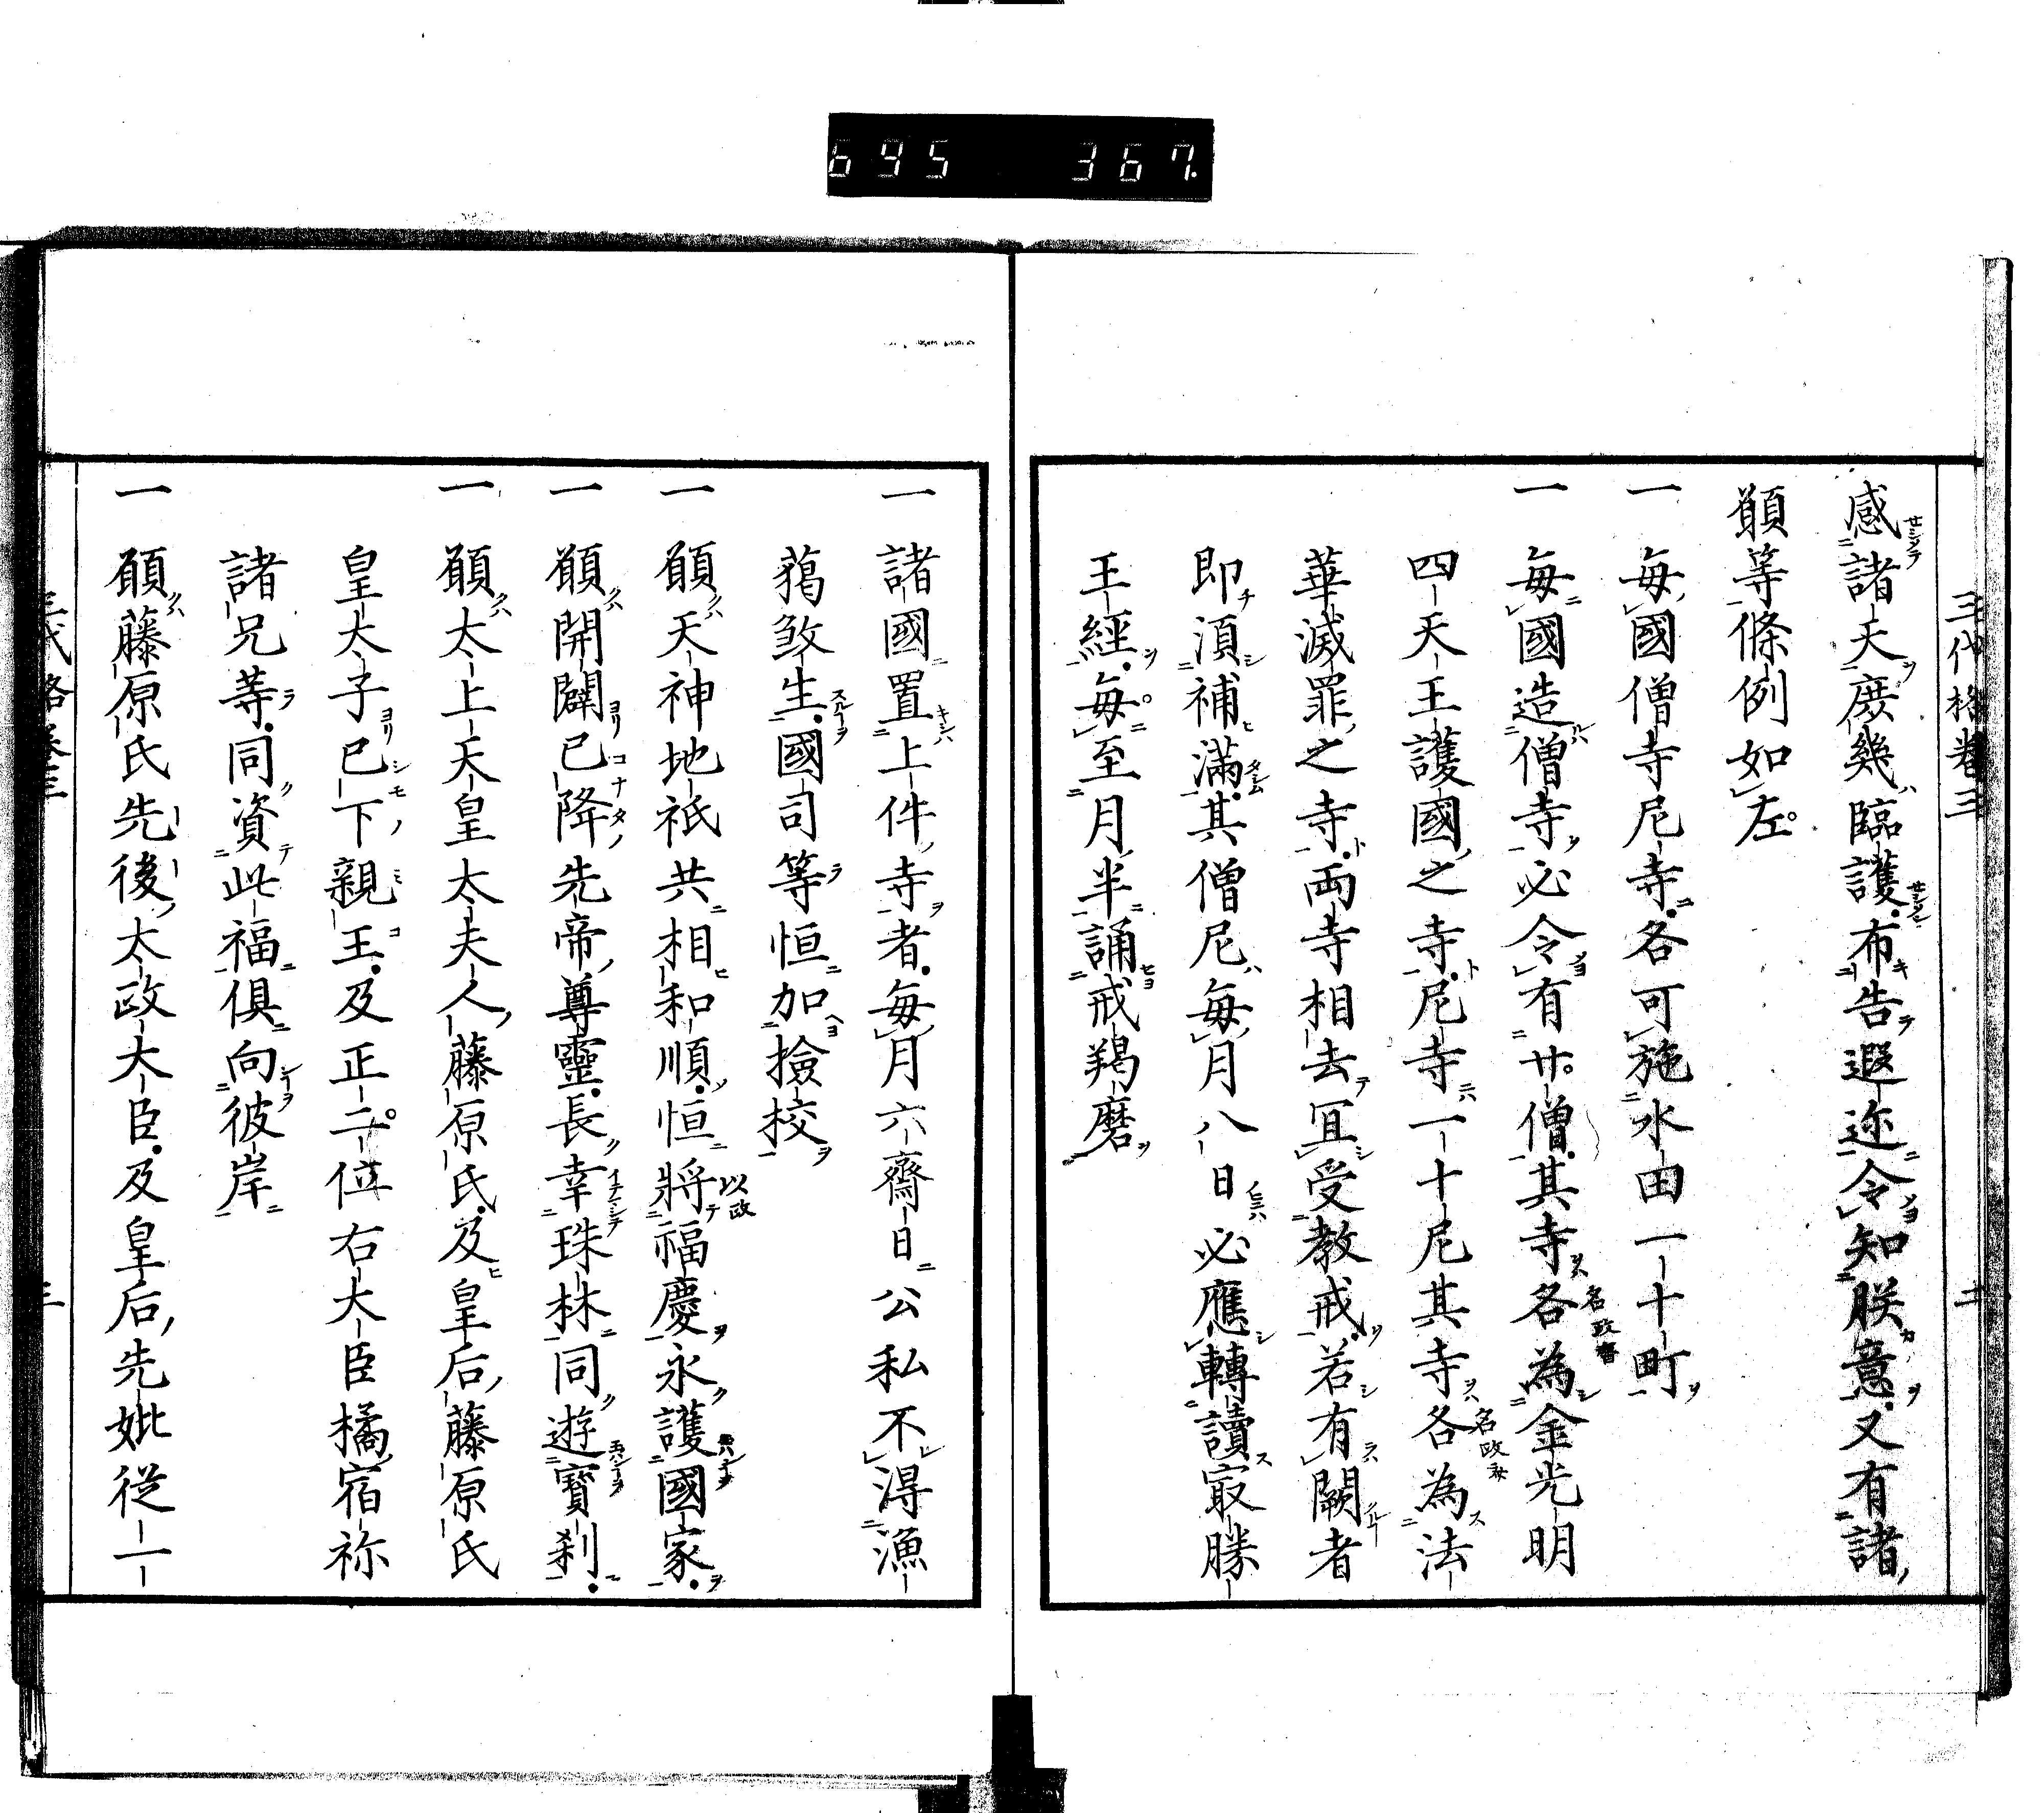 695 367
三代格卷三
二
感諸天庶幾臨護布告遐迩令知朕意又有諸
願等條例如左
一每國僧寺尼寺各可施水田一十町
一每國造僧寺必令有廿僧其寺各為金光明
四天王護國之寺尼寺一十尼其寺各為法
華滅罪之寺両寺相去冝受教戒若有闕者
即湏補滿其僧尼每月八日必應轉讀㝡勝
王經每至月半誦戒羯磨
一諸國置上件寺者每月六齋日公私不淂漁
獦煞生國司等恒加撿校
一願天神地祇共相和順恒將福慶永護國家
一願開闢已降先帝尊靈長幸珠林同遊寶刹
一願太上天皇太夫人藤原氏及皇后藤原氏
皇太子已下親王及正二位右大臣橘宿祢
諸兄等同資此福俱向彼岸
一願藤原氏先後太政大臣及皇后先妣從一
三代格卷三
三